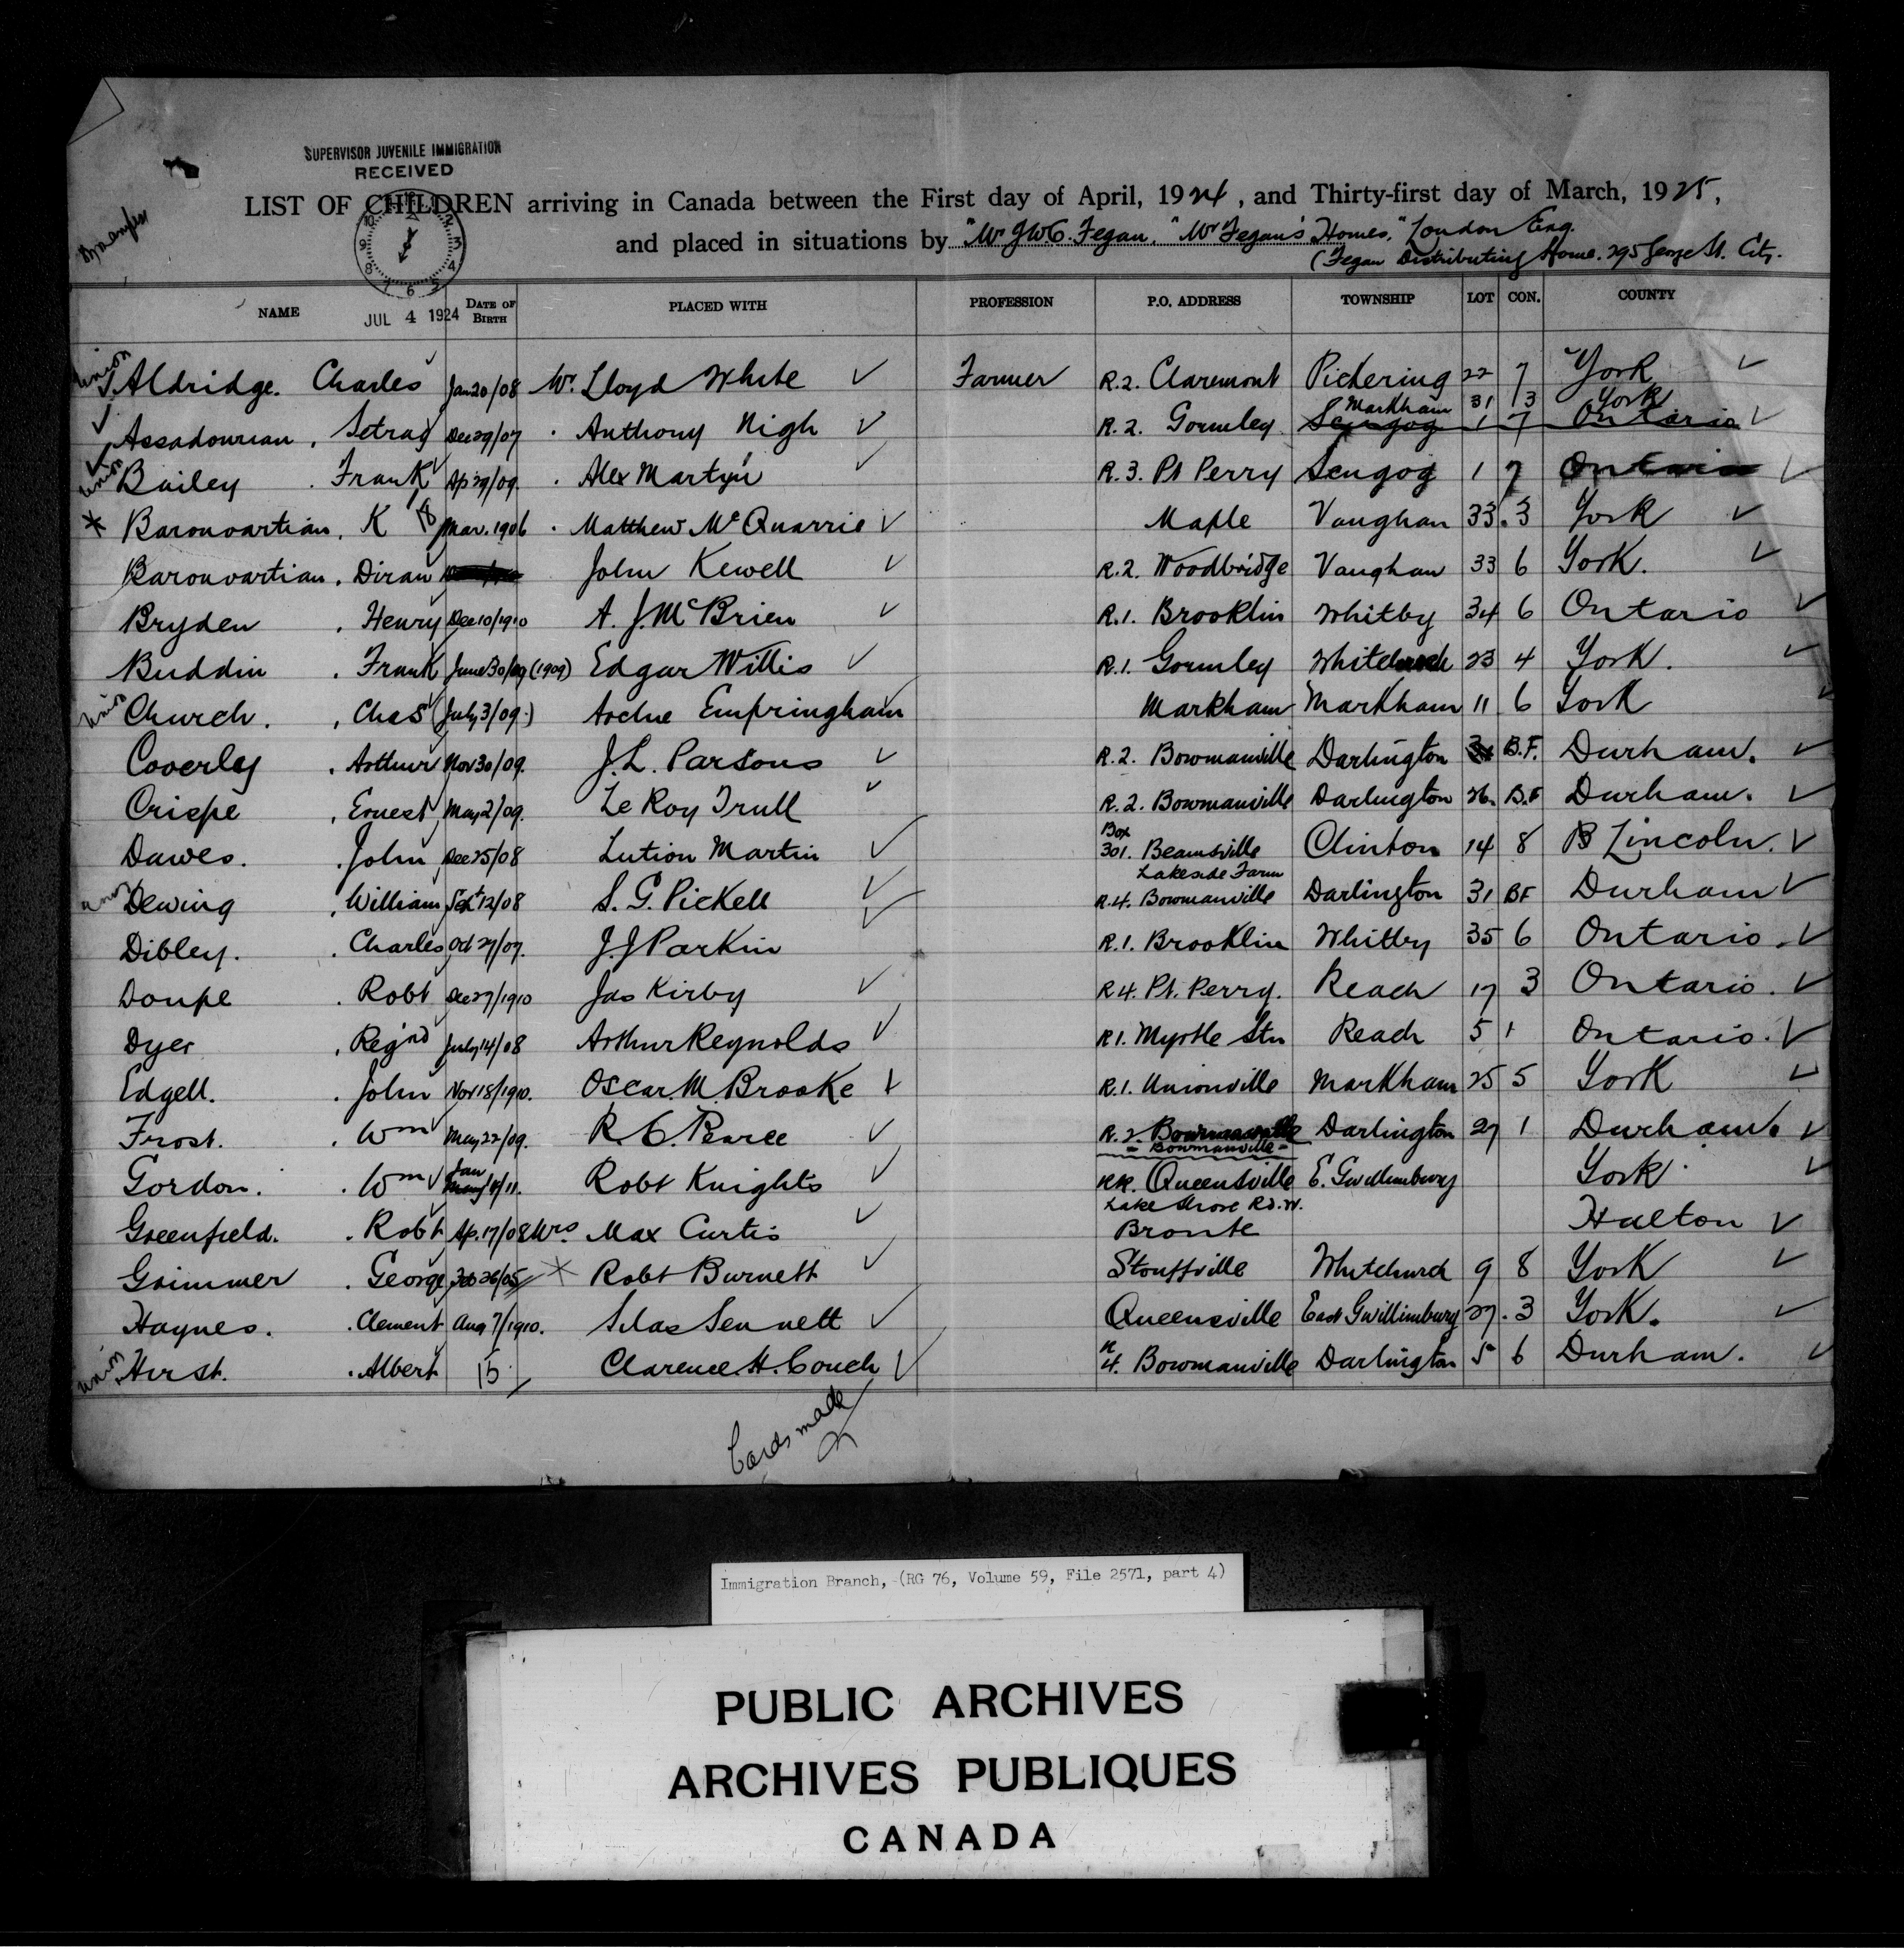 SUPERVISOR JUVENILE IMMIGRATION
RECEIVED
LIST OF CHILDREN arriving in Canada between the First day of April, 1924, and Thirty-first day of March, 1925,
and placed in situations by "Mr J.W.C. Fegan, "Mr Fegan's Homes," London Eng.
(Fegan Distributing Home. 295 George St. City.
JUL 4 1924
NAME DATE OF BIRTH PLACED WITH PROFESSION P.O. ADDRESS TOWNSHIP LOT CON. COUNTY
Union Aldridge. Charles Jan 20/08 Mr. Lloyd White Farmer R.2. Claremont Pickering 22 7 York
Markham 31 3 York
Assadourian, Setrag Dec 29/07 Anthony Nigh R.2. Gormley Scugog 1 7 Ontario
Union Bailey. Frank Ap 29/09. Alex Martyn R.3. Pt Perry Scugog 1 7 Ontario
Baronvartian, K 18 Mar. 1906 Matthew McQuarrie Maple Vaughan 33. 3 York
Baronvartian, Diran John Kewell R.2. Woodbridge Vaughan 33 6 York.
Bryden, Henry Dec 10/1910 A. J. McBrien R.1. Brooklin Whitby 34 6 Ontario
Buddin, Frank June 30/09 (1909) Edgar Willis R.1. Gormley Whitchurch 23 4 York.
Union Church., Chas (July 3/09.) Archie Empringham Markham Markham 11 6 York
Coverley, Arthur Nov 30/09. J.L. Parsons R.2. Bowmanville Darlington B.F. Durham.
Crispe, Ernest May 2/09. Le Roy Trull R.2. Bowmanville Darlington 26. B.F Durham.
Dawes. John Dec 25/08 Lution Martin Box 301. Beamsville Clinton 14 8 Lincoln.
Lakeside Farm
Union Dewing, William Sept 12/08 S. G. Pickell R.4. Bowmanville Darlington 31 BF Durham
Dibley. Charles Oct 27/07. J.J Parkin R.1. Brooklin Whitby 35 6 Ontario.
Doupe. Robt Dec 27/1910 Jas Kirby R4. Pt. Perry. Reach 17 3 Ontario.
Dyer, Regnd July 14/08 Arthur Reynolds R1. Myrtle Stn Reach 5 1 Ontario.
Edgell. John Nov 18/1910. Oscar. M. Brooke R.1. Unionville Markham 25 5 York
Frost. Wm May 22/09. R. C. Pearce R.2. Bowmanville Darlington 27 1 Durham.
- Bowmanville -
Gordon. Wm Jan /11. Robt Knights RR. Queensville E. Gwillimbury York
Lake Shore Rd. W.
Greenfield. Robt Ap. 17/08 Mrs Max Curtis Bronte Halton
Grimmer. George Feb 26/05 Robt Burnett Stouffville Whitchurch 9 8 York
Haynes. Clement Aug 7/1910. Silas Sennett Queensville East Gwillimbury 27. 3 York.
Union Hirst. Albert 15 Clarence. H. Couch R 4. Bowmanville Darlington 5 6 Durham.
Cards made
Immigration Branch, (RG 76, Volume 59, File 2571, part 4)
PUBLIC ARCHIVES
ARCHIVES PUBLIQUES
CANADA